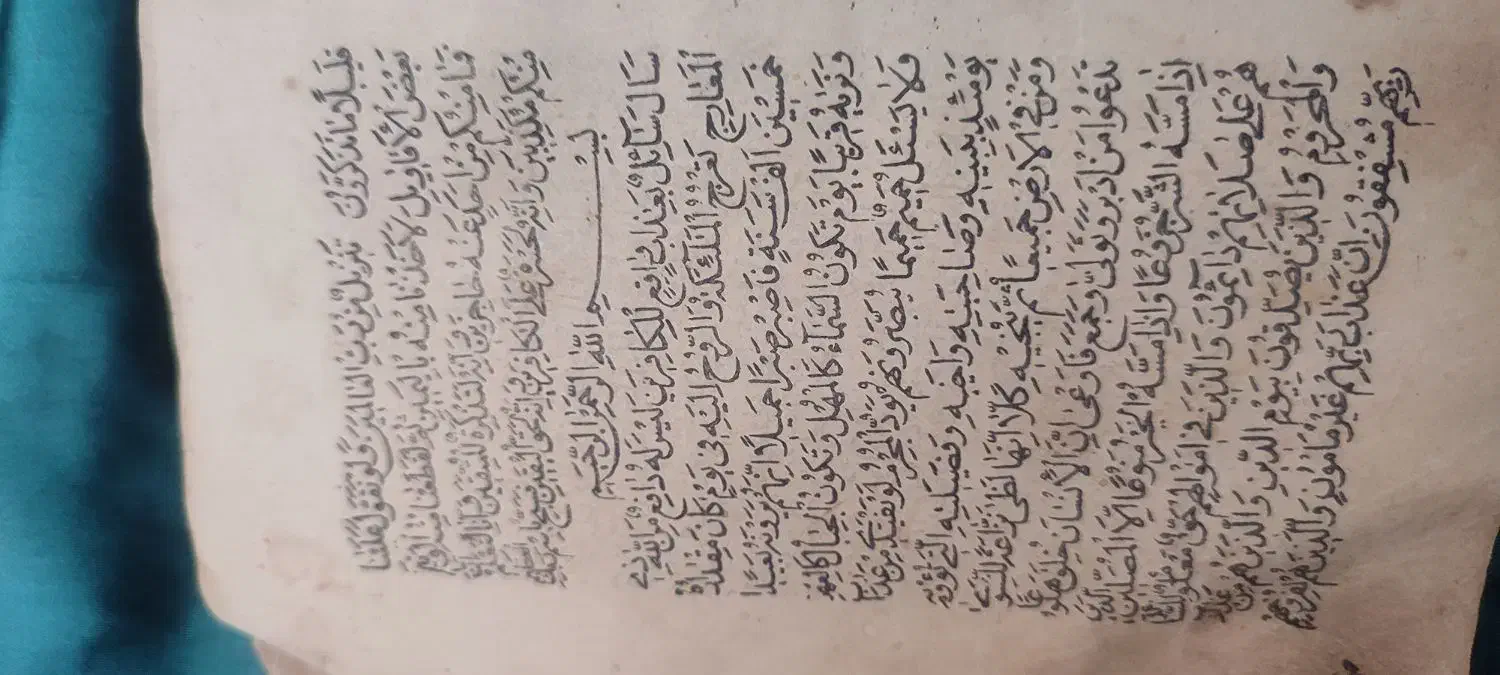 قَلِيلًا مَا تَذَكَّرُونَ تَنْزِيلٌ مِنْ رَبِّ الْعَالَمِينَ وَلَوْ تَقَوَّلَ عَلَيْنَا
بَعْضَ الْأَقَاوِيلِ لَأَخَذْنَا مِنْهُ بِالْيَمِينِ ثُمَّ لَقَطَعْنَا مِنْهُ الْوَتِينَ
فَمَا مِنْكُمْ مِنْ أَحَدٍ عَنْهُ حَاجِزِينَ وَإِنَّهُ لَتَذْكِرَةٌ لِلْمُتَّقِينَ وَإِنَّا لَنَعْلَمُ أَنَّ
مِنْكُمْ مُكَذِّبِينَ وَإِنَّهُ لَحَسْرَةٌ عَلَى الْكَافِرِينَ وَإِنَّهُ لَحَقُّ الْيَقِينِ فَسَبِّحْ بِاسْمِ رَبِّكَ الْعَظِيمِ
بِسْمِ اللهِ الرَّحْمٰنِ الرَّحِيمِ
سَأَلَ سَائِلٌ بِعَذَابٍ وَاقِعٍ لِلْكَافِرِينَ لَيْسَ لَهُ دَافِعٌ مِنَ اللهِ ذِي
الْمَعَارِجِ تَعْرُجُ الْمَلٰئِكَةُ وَالرُّوحُ إِلَيْهِ فِي يَوْمٍ كَانَ مِقْدَارُهُ
خَمْسِينَ أَلْفَ سَنَةٍ فَاصْبِرْ صَبْرًا جَمِيلًا إِنَّهُمْ يَرَوْنَهُ بَعِيدًا
وَنَرَاهُ قَرِيبًا يَوْمَ تَكُونُ السَّمَاءُ كَالْمُهْلِ وَتَكُونُ الْجِبَالُ كَالْعِهْنِ
وَلَا يَسْئَلُ حَمِيمٌ حَمِيمًا يُبَصَّرُونَهُمْ يَوَدُّ الْمُجْرِمُ لَوْ يَفْتَدِي مِنْ عَذَابِ
يَوْمِئِذٍ بِبَنِيهِ وَصَاحِبَتِهِ وَأَخِيهِ وَفَصِيلَتِهِ الَّتِي تُؤْوِيهِ
وَمَنْ فِي الْأَرْضِ جَمِيعًا ثُمَّ يُنْجِيهِ كَلَّا إِنَّهَا لَظَى نَزَّاعَةً لِلشَّوَى
تَدْعُوا مَنْ أَدْبَرَ وَتَوَلَّى وَجَمَعَ فَأَوْعَى إِنَّ الْإِنْسَانَ خُلِقَ هَلُوعًا
إِذَا مَسَّهُ الشَّرُّ جَزُوعًا وَإِذَا مَسَّهُ الْخَيْرُ مَنُوعًا إِلَّا الْمُصَلِّينَ الَّذِينَ
هُمْ عَلَى صَلَاتِهِمْ دَائِمُونَ وَالَّذِينَ فِي أَمْوَالِهِمْ حَقٌّ مَعْلُومٌ لِلسَّائِلِ
وَالْمَحْرُومِ وَالَّذِينَ يُصَدِّقُونَ بِيَوْمِ الدِّينِ وَالَّذِينَ هُمْ مِنْ عَذَابِ
رَبِّهِمْ مُشْفِقُونَ إِنَّ عَذَابَ رَبِّهِمْ غَيْرُ مَأْمُونٍ وَالَّذِينَ هُمْ لِفُرُوجِهِمْ